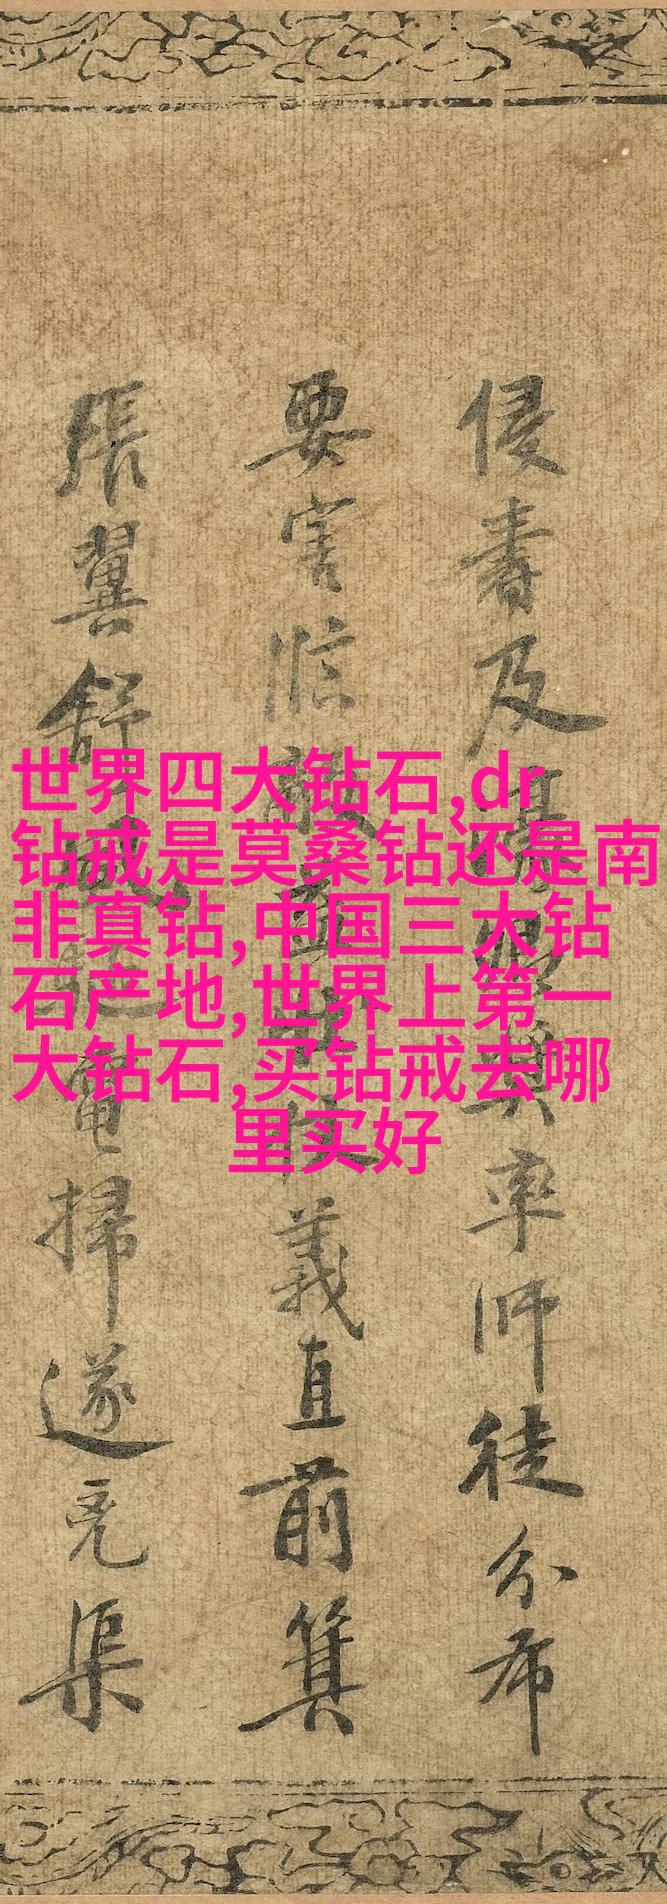 世界四大钻石,dr
钻戒是莫桑钻还是南
非真钻,中国三大钻
石产地,世界上第一
大钻石,买钻戒去哪
里买好
侵書及 率師徒分布
要害臨 義直前箕
張翼舒 電掃遂
渠